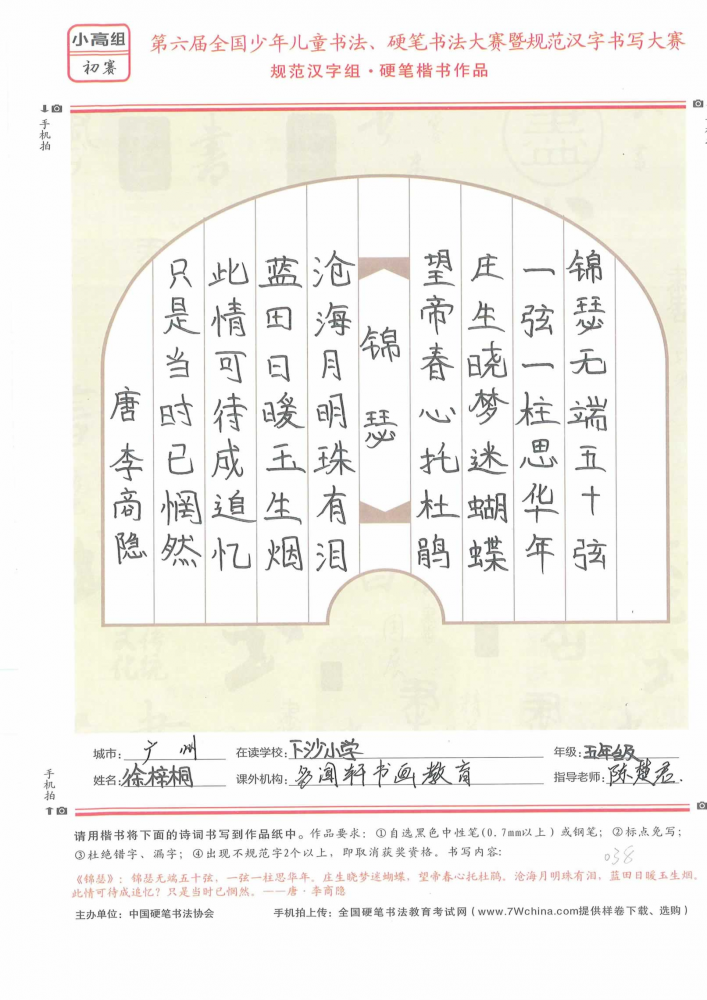 小高组
初赛
第六届全国少年儿童书法、硬笔书法大赛暨规范汉字书写大赛
规范汉字组·硬笔楷书作品
手机拍
锦瑟无端五十弦
一弦一柱思华年
庄生晓梦迷蝴蝶
望帝春心托杜鹃
锦瑟
沧海月明珠有泪
蓝田日暖玉生烟
此情可待成追忆
只是当时已惘然
唐李商隐
城市：广州 在读学校：下沙小学 年级：五年级
姓名：徐梓桐 课外机构：名闻轩书画教育 指导老师：陈楚君.
手机拍
请用楷书将下面的诗词书写到作品纸中。作品要求：①自选黑色中性笔(0.7mm以上）或钢笔；②标点免写；
③杜绝错字、漏字；④出现不规范字2个以上，即取消获奖资格。书写内容：
038
《锦瑟》：锦瑟无端五十弦，一弦一柱思华年。庄生晓梦迷蝴蝶，望帝春心托杜鹃。沧海月明珠有泪，蓝田日暖玉生烟。
此情可待成追忆？只是当时已惘然。——唐·李商隐
主办单位：中国硬笔书法协会 手机拍上传：全国硬笔书法教育考试网（www.7Wchina.com提供样卷下载、选购）